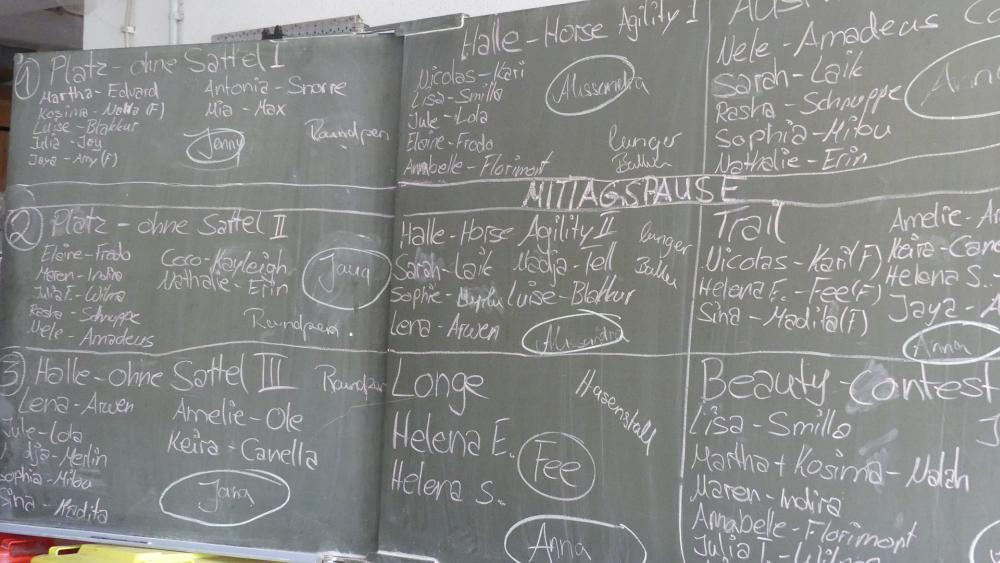 ① Platz - ohne Sattel I
Martha - Edvard
Kosima - Nalla (F)
Luise - Blakkur
Julia - Joy
Jaya - Amy (F)
Antonia - Snorre
Mia - Max
Jenny
Roundpen
Halle - Horse Agility I
Nicolas - Kari
Lisa - Smilla
Jule - Lola
Elaine - Frodo
Annabelle - Florimont
Alessandra
Nele - Amadeus
Sarah - Laik
Rasha - Schnuppe
Sophia - Mibu
Nathalie - Erin
MITTAGSPAUSE
② Platz - ohne Sattel II
Elaine - Frodo
Maren - Indira
Julia F. - Wilma
Rasha - Schnuppe
Nele - Amadeus
Coco - Kayleigh
Nathalie - Erin
Jana
Roundpen.
Halle - Horse Agility II
Sarah - Laik Nadja - Tell
Sophie - Luise - Blakkur
Lena - Arwen
Alessandra
Trail
Nicolas - Karil (F)
Helena E. - Fee (F)
Sina - Madita (F)
Amelie -
Keira - Cane
Helena S. -
Jaya - A
Anna
③ Halle - ohne Sattel III
Lena - Arwen
Jule - Lola
dja - Merlin
Sophia - Mibu
Sina - Madita
Amelie - Ole
Keira - Canella
Jana
Longe
Helena E.
Helena S.
Fee
Anna
Hasenstall
Beauty - Contest
Lisa - Smilla
Martha + Kosima - Nalah
Maren - Indira
Annabelle - Florimont
Julia F. - Wilma